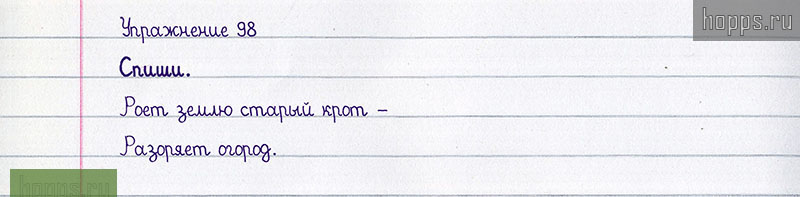 Упражнение 98
hopps.ru
Спиши.
Роет землю старый крот –
Разоряет огород.
hopps.ru